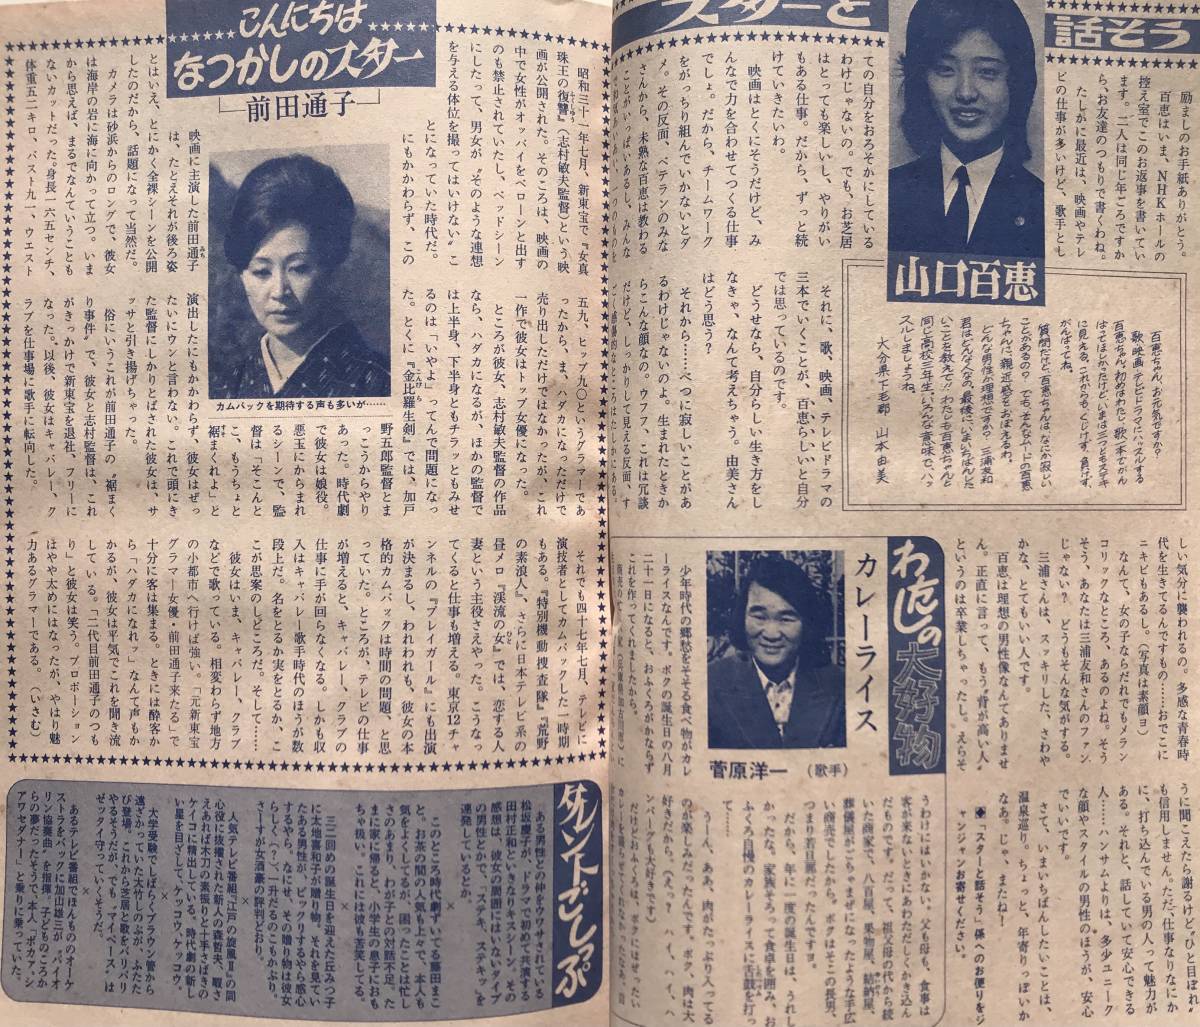 スターと
話そう
山口百恵
励ましのお手紙ありがとう。
百恵はいま、NHKホールの
控え室でこのお返事を書いてい
ます。二人は同じ年ごろですか
ら、お友達のつもりで書くわね。
たしかに最近は、映画やテレ
ビの仕事が多いけど、歌手とし
ての自分をおろそかにしている
わけじゃないの。でも、お芝居
はとっても楽しいし、やりがい
もある仕事。だから、ずっと続
けていきたいわ。
映画はとくにそうだけど、み
んなで力を合わせてつくる仕事
でしょ。だから、チームワーク
をがっちり組んでいかないとダ
メ。その反面、ベテランのみな
さんから、未熟な百恵は教わる
ことがいっぱいあるし、みんな
それに、歌、映画、テレビドラマの
三本でいくことが、百恵らしいと自分
では思っているのです。
どうせなら、自分らしい生き方をし
なきゃ、なんて考えちゃう。由美さん
はどう思う？
それから……べつに寂しいことがあ
るわけじゃないのよ。生まれたときか
らこんな顔なの。ウフフ、これは冗談
だけど、しっかりして見える反面、す
百恵ちゃん、お元気ですか？
歌、映画、テレビドラマにハッスルする
百恵ちゃん。初めはわたし、歌一本でがん
ばってほしかったけど、いまは三つともステキ
に見える。これからも、くじけず、負けず、
がんばってね。
質問だけど、百恵ちゃんは、なにか寂しい
ことがあるの？でも、そんなムードの百恵
ちゃんに、親近感をおぼえるわ。
どんな男性が理想ですか？三浦友和
君はどんな人なの。最後に、いまいちばんした
いことを教えて!!わたしも百恵ちゃんと
同じ高校三年生。いろんな意味で、ハッ
スルしましょうね。
大分県下毛郡 山本由美
しい気分に襲われるの。多感な青春時
代を生きてるんですもの……おでこに
ニキビもあるし。（写真は素顔ヨ）
なんて、女の子ならだれでもメラン
コリックなところ、あるのよね。そう
そう、あなたは三浦友和さんのファン
じゃない？どうもそんな気がする。
三浦さんは、スッキリした、さわや
かな、とてもいい人です。
百恵は理想の男性像なんてありませ
ん。正直に言って、もう〝背が高い人〟
というのは卒業しちゃったし。えらそ
うに聞こえたら謝るけど〝ひと目ぼれ〟
も信用しません。ただ、仕事なりなにか
に、打ち込んでいる男の人って魅力が
ある。それと、話していて安心できる
人……ハンサムよりは、多少ユニーク
な顔やスタイルの男性のほうが、安心
さて、いまいちばんしたいことは、
温泉巡り。ちょっと、年寄りっぽいか
なあ。じゃ、またね！
◆「スターと話そう」係へのお便りをジ
ャンジャンお寄せください。
わたしの大好物
カレーライス
菅原洋一（歌手）
少年時代の郷愁をそそる食べ物がカレ
ーライスなんです。ボクの誕生日の八月
二十一日になると、おふくろがかならず
これを作ってくれましてね。
うわけにはいかない。父も母も、食事は
客が来ないときにあわただしくかき込ん
だものです。だって、祖父母の代から続
いた商家で、八百屋、果物屋、結納屋、
葬儀屋がごちゃまぜになったような手広
い商売でしたから。ボクはそこの長男、
つまり若旦那だったんですヨ。
だから、年に一度の誕生日は、うれし
かったな。家族そろって食卓を囲み、お
ふくろ自慢のカレーライスに舌鼓を打っ
て……
うーん、ああ、肉がたっぷり入ってる
のが楽しみだったんです。ボク、肉は大
好きだから。（えっ？ハイ、ハイ、ハ
ンバーグも大好きです）
こんにちは
なつかしのスター
前田通子
昭和三十一年七月、新東宝で『女真
珠王の復讐』（志村敏夫監督）という映
画が公開された。そのころは、映画の
中で女性がオッパイをペローンと出す
のも禁止されていたし、ベッドシーン
にしたって、男女が〝そのような連想
を与える体位を撮ってはいけない〟こ
とになっていた時代だ。
にもかかわらず、この
映画に主演した前田通子
は、たとえそれが後ろ姿
とはいえ、とにかく全裸シーンを公開
したのだから、話題になって当然だ。
カメラは砂浜からのロングで、彼女
は海岸の岩に海に向かって立つ。いま
から思えば、まるでなんていうことも
ないカットだった。身長一六五センチ、
体重五二キロ、バスト九一、ウエスト
カムバックを期待する声も多いが……
五九、ヒップ九〇というグラマーであ
ったから、ま、ハダカになっただけで
売り出しただけではなかったが、これ
一作で彼女はトップ女優になった。
ところが彼女、志村敏夫監督の作品
なら、ハダカになるが、ほかの監督で
は上半身、下半身ともチラッともみせ
るのは「いやよ」ってんで問題になっ
た。とくに『金比羅生剣』では、加戸
野五郎監督とま
っこうからやり
あった。時代劇
で彼女は娘役。
悪玉にからまれ
るシーンで、監
督は「そこんと
こ、もうちょと
裾まくれよ」と
演出したにもかかわらず、彼女はぜっ
たいにウンと言わない。これで頭にき
た監督にしかりとばされた彼女は、サ
ッサと引き揚げちゃった。
俗にいうこれが前田通子の〝裾まく
り事件〟で、彼女と志村監督は、これ
がきっかけで新東宝を退社、フリーに
なった。以後、彼女はキャバレー、ク
ラブを仕事場に歌手に転向した。
それでも四十七年七月、テレビに
演技者としてカムバックした一時期
もある。『特別機動捜査隊』『荒野
の素浪人』、さらに日本テレビ系の
昼メロ『渓流の女』では、恋する人
妻という主役さえやった。こうなっ
てくると仕事も増える。東京12チャ
ンネルの『プレイガール』にも出演
が決まるし、われわれも、彼女の本
格的カムバックは時間の問題、と思
っていた。ところが、テレビの仕事
が増えると、キャバレー、クラブの
仕事に手が回らなくなる。しかも収
入はキャバレー歌手時代のほうが数
段上だ。名をとるか実をとるか、こ
こが思案のしどころだ。そして……
彼女はいま、キャバレー、クラブ
などで歌い、相変わらず地方
の小都市へ行けば強い。「元新東宝
グラマー女優・前田通子来たる」で
十分に客は集まる。ときには酔客か
ら「ハダカになれッ」なんて声もか
かるが、彼女は平気でこれを聞き流
している。「二代目前田通子のつも
り」と彼女は笑う。プロポーション
はやや太めにはなったが、やはり魅
力あるグラマーである。（いさむ）
タレントごしっぷ
ある男性との仲をウワサされている
松坂慶子が、ドラマで初めて共演する
田村正和といきなりキスシーン。その
感想は、彼女の周囲にはいないタイプ
の男性とかで、「ステキ、ステキッ」を
連発しているとか。
×
このところ時代劇ずいてる藤田まこ
と。お茶の間の人気も上々で、本人も
気をよくしてるが、困ったことは忙し
さのあまり、わが子との対話不足。た
まに家に帰ると、小学生の息子におも
ちゃ扱い。これには彼も苦笑してる。
×
三二回めの誕生日を迎えた丘みつ子
に太地喜和子が贈り物。それを見てい
たある男性が、ビックリするやら感心
するやら。なにせ、その贈り物は彼女
らしく（？）一升だるのこもかぶり。
さーすが女酒豪の評判どおり。
×
人気テレビ番組「江戸の旋風Ⅱ」の同
心役に抜擢された新人の森哲夫、暇さ
えあれば木刀の素振りと十手さばきの
ケイコに精出している。時代劇の新し
い星を目ざして、ケッコウ、ケッコウ。
×
大学受験でしばらくブラウン管から
遠ざかっていた大竹しのぶが、ふたた
び登場。これから芝居と歌をバリバリ
やるそうだが「でも、マイペースは
ゼッタイ守っていくそうだ。
×
あるテレビ番組でほんもののオーケ
ストラをバックに加山雄三が〝バイオ
リン協奏曲〟を指揮。子どものころか
らの夢だったそうで、本人「ボカァ、シ
アワセダナー」と乗りに乗っていた。